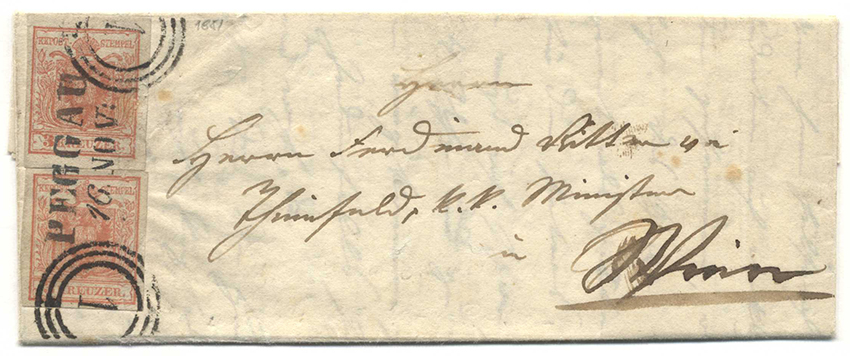 1851
K.K.POST-STEMPEL
3 KREUZER.
KKPOST-STEMPEL
KREUZER.
PEGGAU
16. NOV:
Herrn
Herrn Ferdinand Ritter v
Thinnfeld, k. k. Minister
in
Wien